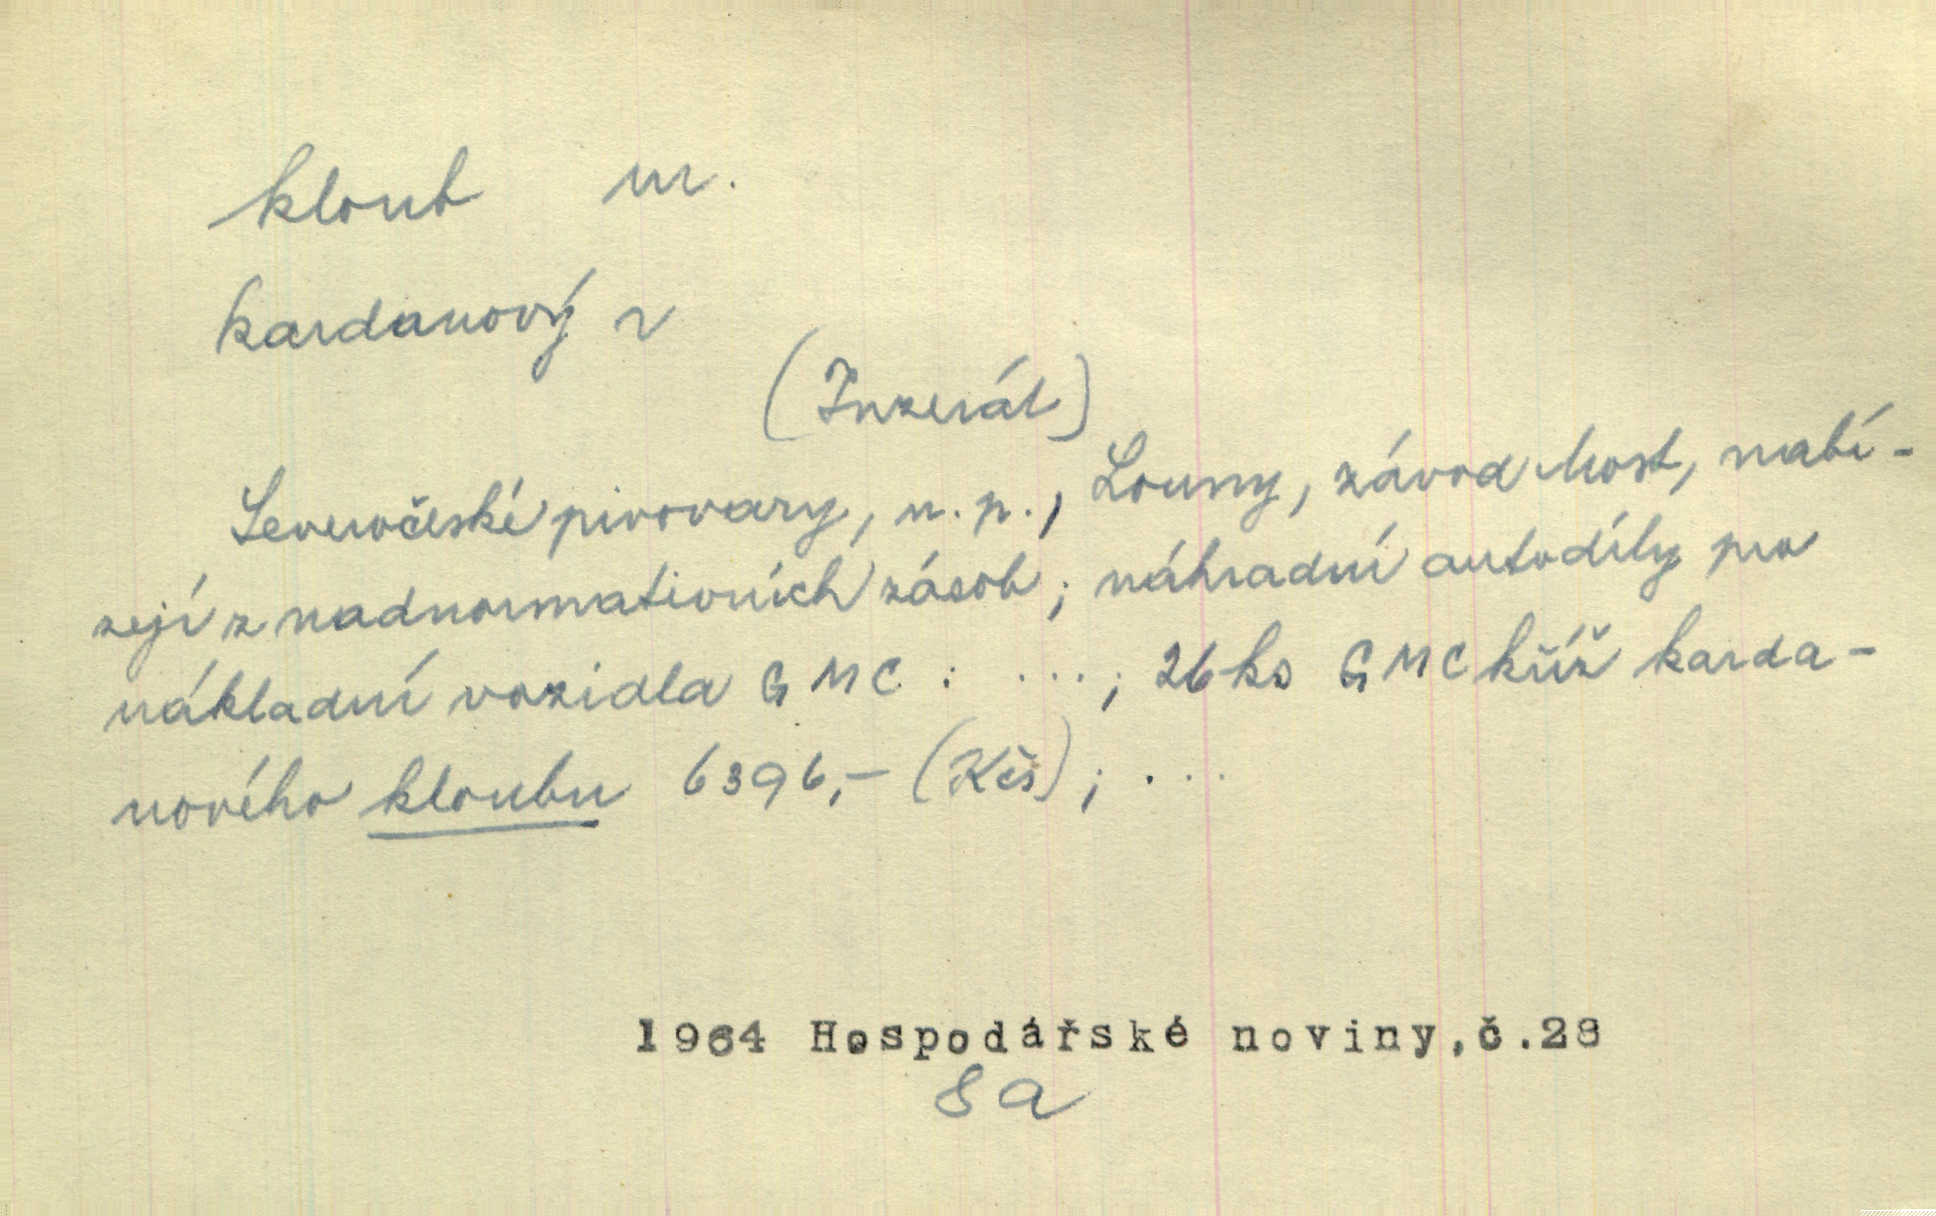 kloub m.
kardanový v
(Inzerát)
Severočeské pivovary, n. p., Louny, závod Most, nabí-
zejí z nadnormativních zásob; náhradní autodíly pro
nákladní vozidla GMC : ...; 26 ks GMC kříž karda-
nového kloubu 6396,- (Kčs); ...
1964 Hospodářské noviny,č.28
8a